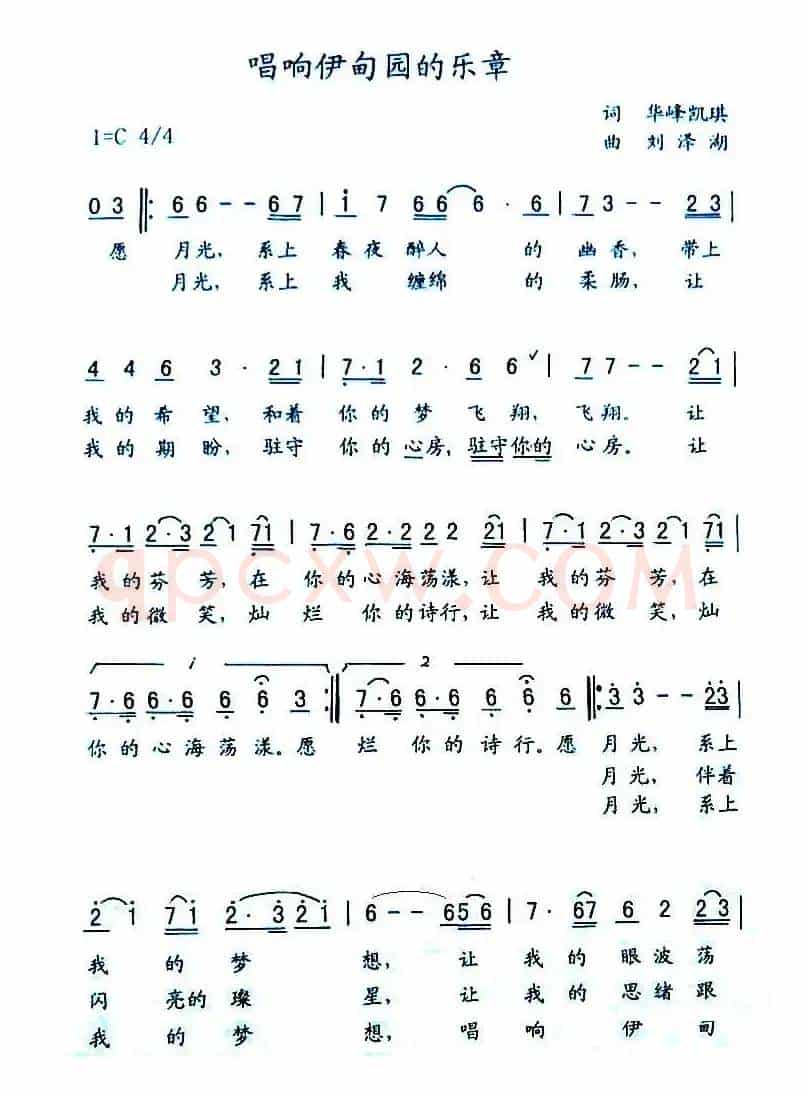 唱响伊甸园的乐章
词 华峰凯琪
1=C 4/4
曲 刘泽湖
0 3 ‖: 6 6 - - 6 7 | i 7 6 6 6 · 6 | 7 3 - - 2 3 |
愿 月光, 系上 春夜醉人 的 幽香, 带上
月光, 系上 我 缠绵 的 柔肠, 让
4 4 6 3 · 2 1 | 7 · 1 2 · 6 6 ∨ | 7 7 - - 2 1 |
我的希望, 和着 你的梦 飞翔, 飞翔. 让
我的期盼, 驻守 你的心房, 驻守你的 心房。让
7 · 1 2 · 3 2 1 7 1 | 7 · 6 2 · 2 2 2 2 1 | 7 · 1 2 · 3 2 1 7 1 |
我的芬芳, 在 你的心海荡漾, 让 我的芬芳, 在
我的微笑, 灿 烂 你的诗行, 让 我的微笑, 灿
qpcxw.COM
1 2
7 · 6 6 · 6 6 6 3 :‖ 7 · 6 6 · 6 6 6 6 ‖: 3 3 - - 2 3 |
你的心海荡漾。愿 烂 你的诗行。愿 月光, 系上
月光, 伴着
月光, 系上
2 i 7 i 2 · 3 2 i | 6 - - 6 5 6 | 7 · 6 7 6 2 2 3 |
我 的 梦 想, 让 我 的 眼波荡
闪 亮的璨 星, 让 我 的 思绪跟
我 的 梦 想, 唱 响 伊 甸